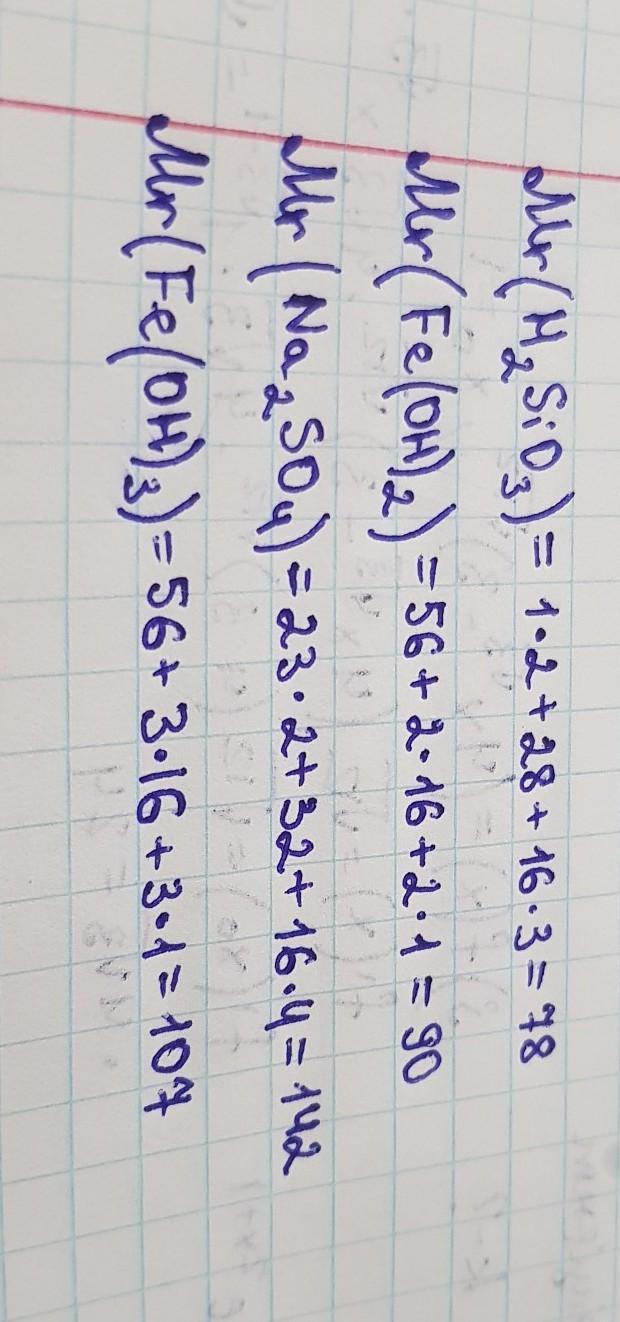 Mr(H₂SiO₃) = 1·2 + 28 + 16·3 = 78
Mr(Fe(OH)₂) = 56 + 2·16 + 2·1 = 90
Mr(Na₂SO₄) = 23·2 + 32 + 16·4 = 142
Mr(Fe(OH)₃) = 56 + 3·16 + 3·1 = 107